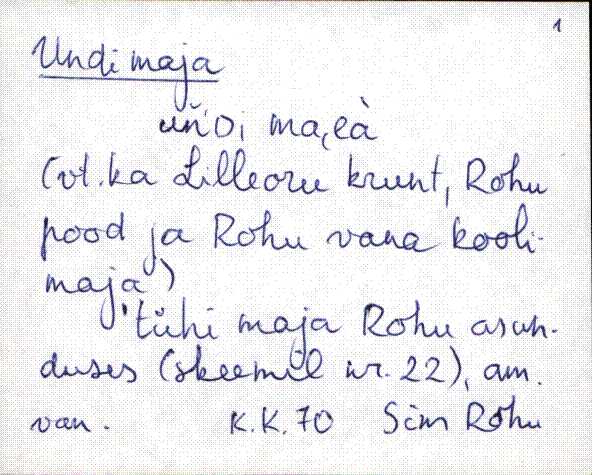 1
Undi maja
(vt. ka Lilleoru krunt, Rohu
pood ja Rohu vana kooli-
maja)
'tühi maja Rohu asun-
duses (skeemil nr. 22), am.
van. K.K. 70 Sim Rohu